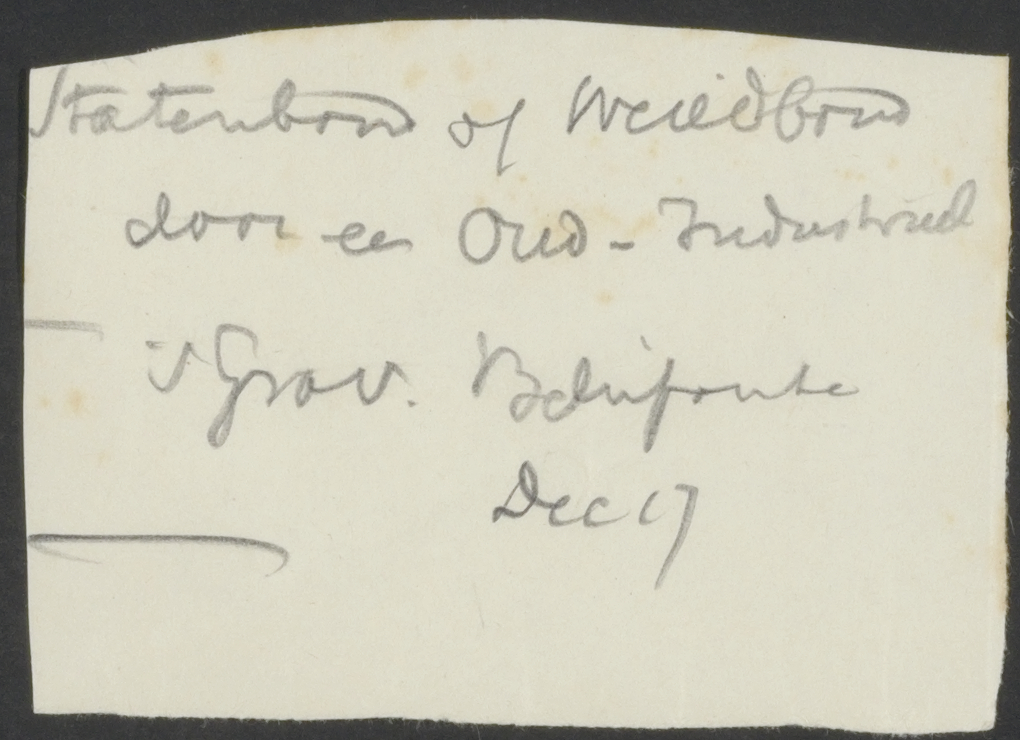 Statenbond of Wereldbond
door een Oud-Industrieel
's Grav. Belinfante
Dec 17